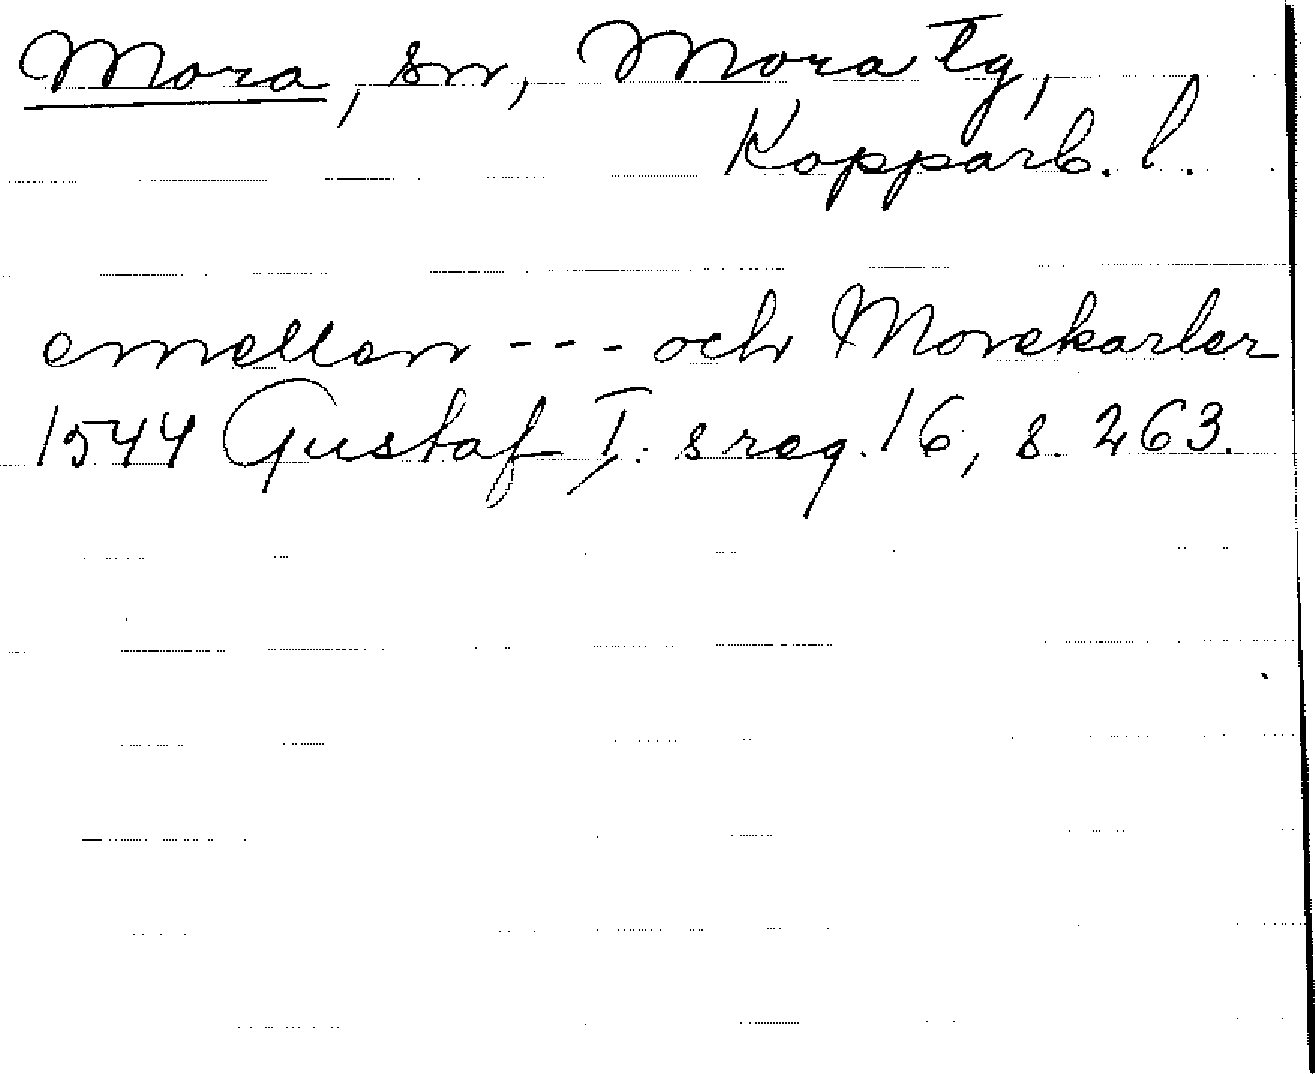 Mora, sn, Mora tg,
Kopparb. l.
emellen --- och Morekarler
1544 Gustaf I:s reg. 16, s. 263.